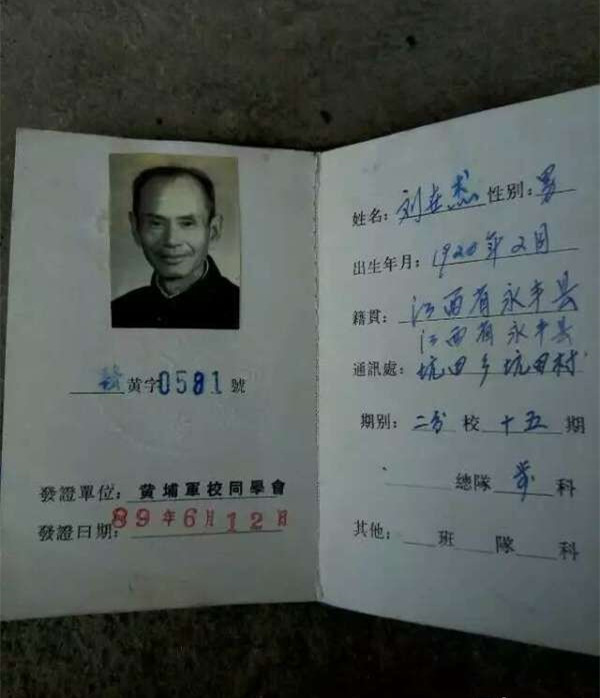 黄字0581號
發證單位：黄埔軍校同學會
發證日期：89年6月12日
姓名：刘在杰 性别：男
出生年月：1920年2月
籍貫：江西省永丰县
江西省永丰县
通訊處：坑田乡坑田村
期别：二分校十五期
總隊 科
其他： 班 隊 科